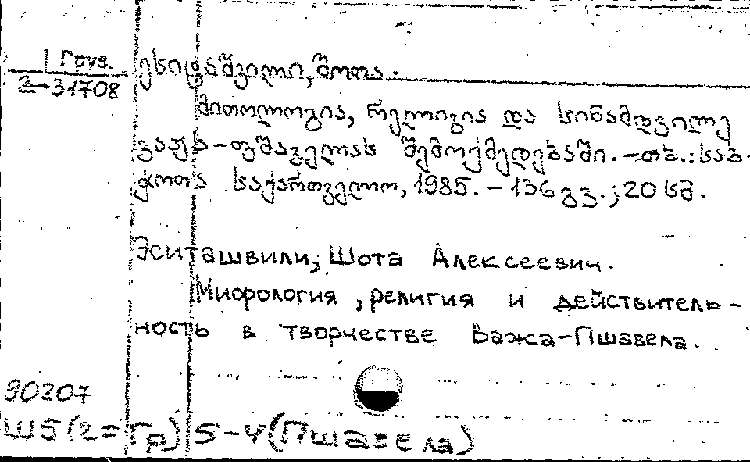 1 Груз.
2-31708
ესიტაშვილი, შოთა.
მითოლოგია, რელიგია და სინამდვილე
ვაჟა-ფშაველას შემოქმედებაში. – თბ.: საბ-
ჭოთა საქართველო, 1985. – 136 გვ.; 20 სმ.
Эситашвили, Шота Алексеевич.
Мифрология, религия и действитель-
ность в творчестве Важа-Пшавела.
90207
Ш5(2=Гр)5-4(Пшавела)